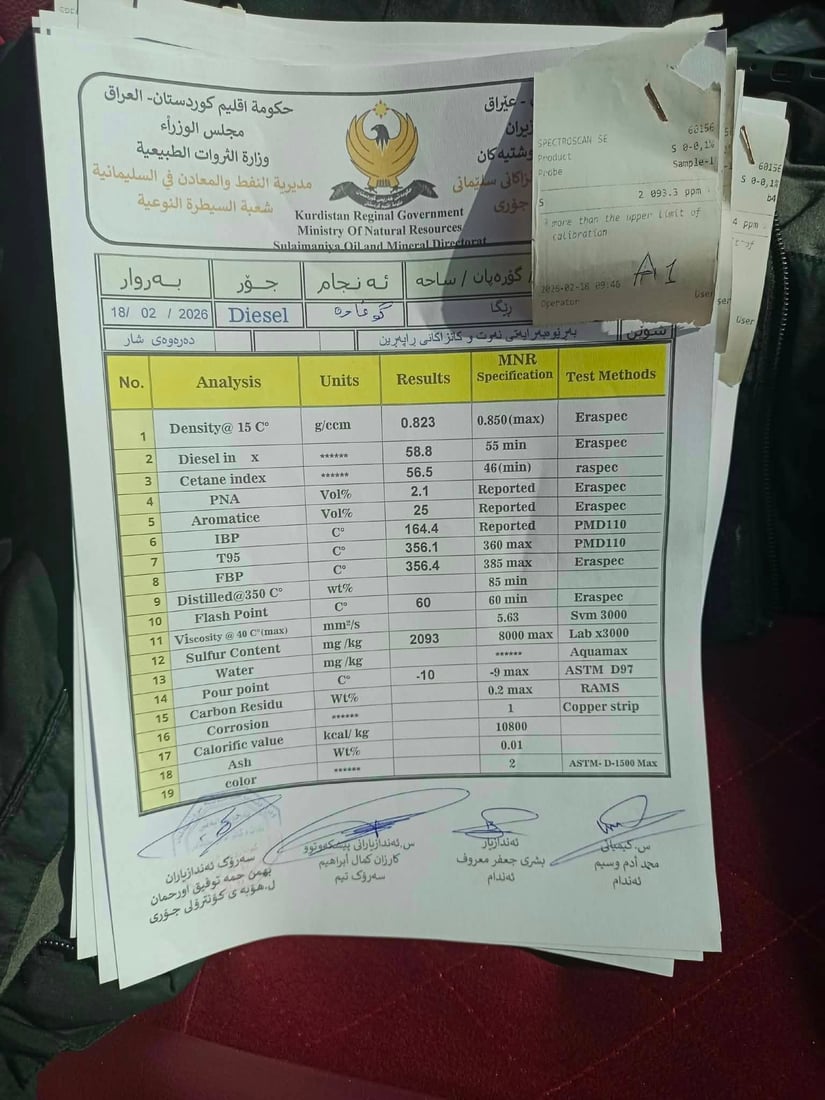 حكومة اقليم كوردستان- العراق
مجلس الوزراء
وزارة الثروات الطبيعية
مديرية النفط والمعادن في السليمانية
شعبة السيطرة النوعية
- عێراق
Kurdistan Reginal Government
Ministry Of Natural Resources
Sulaimaniya Oil and Mineral Directorat
SPECTROSCAN SE 60156
Product S 0-0,1%
Probe Sample-1
S 2 093.3 ppm
more than the upper limit of
calibration
A1
2026-02-18 09:46
Operator User
60156
S 0-0,1%
4 ppm
User
بەروار جۆر ئەنجام / گۆڕەپان / ساحە
18/ 02 / 2026 Diesel ڕێگا
دەرەوەی شار بەڕێوەبەرایەتی نەوت و کانزاکانی ڕاپەڕین شوێن
No. Analysis Units Results MNR Specification Test Methods
1 Density@ 15 C° g/ccm 0.823 0.850(max) Eraspec
2 Diesel in x ****** 58.8 55 min Eraspec
3 Cetane index ****** 56.5 46(min) raspec
4 PNA Vol% 2.1 Reported Eraspec
5 Aromatice Vol% 25 Reported Eraspec
6 IBP C° 164.4 Reported PMD110
7 T95 C° 356.1 360 max PMD110
8 FBP C° 356.4 385 max Eraspec
9 Distilled@350 C° wt% 85 min
10 Flash Point C° 60 60 min Eraspec
11 Viscosity @ 40 C°(max) mm²/s 5.63 Svm 3000
12 Sulfur Content mg /kg 2093 8000 max Lab x3000
13 Water mg /kg ****** Aquamax
14 Pour point C° -10 -9 max ASTM D97
15 Carbon Residu Wt% 0.2 max RAMS
16 Corrosion ****** 1 Copper strip
17 Calorific value kcal/ kg 10800
18 Ash Wt% 0.01
19 color ****** 2 ASTM- D-1500 Max
سەرۆک ئەندازیاران
بهمن جمە توفیق اورحمان
ل.هۆبەی کۆنترۆڵی جۆری
س.ئەندازیارانی پێشکەوتوو
کارزان کمال ابراهیم
سەرۆک تیم
ئەندازیار
بشری جعفر معروف
ئەندام
س.کیمیایی
محمد ادم وسیم
ئەندام